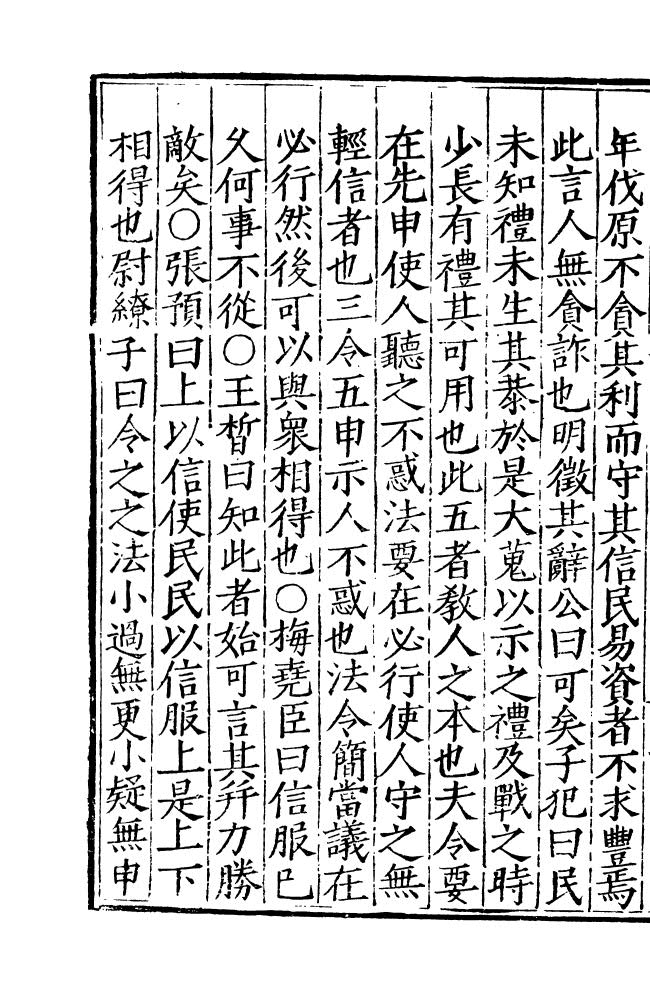 年伐原不貪其利而守其信民易資者不求豐焉
此言人無貪詐也明徵其辭公曰可矣子犯曰民
未知禮未生其恭於是大蒐以示之禮及戰之時
少長有禮其可用也此五者教人之本也夫令要
在先申使人聽之不惑法要在必行使人守之無
輕信者也三令五申示人不惑也法令簡當議在
必行然後可以與衆相得也〇梅堯臣曰信服已
久何事不從〇王晳曰知此者始可言其幷力勝
敵矣〇張預曰上以信使民民以信服上是上下
相得也尉繚子曰令之之法小過無更小疑無申